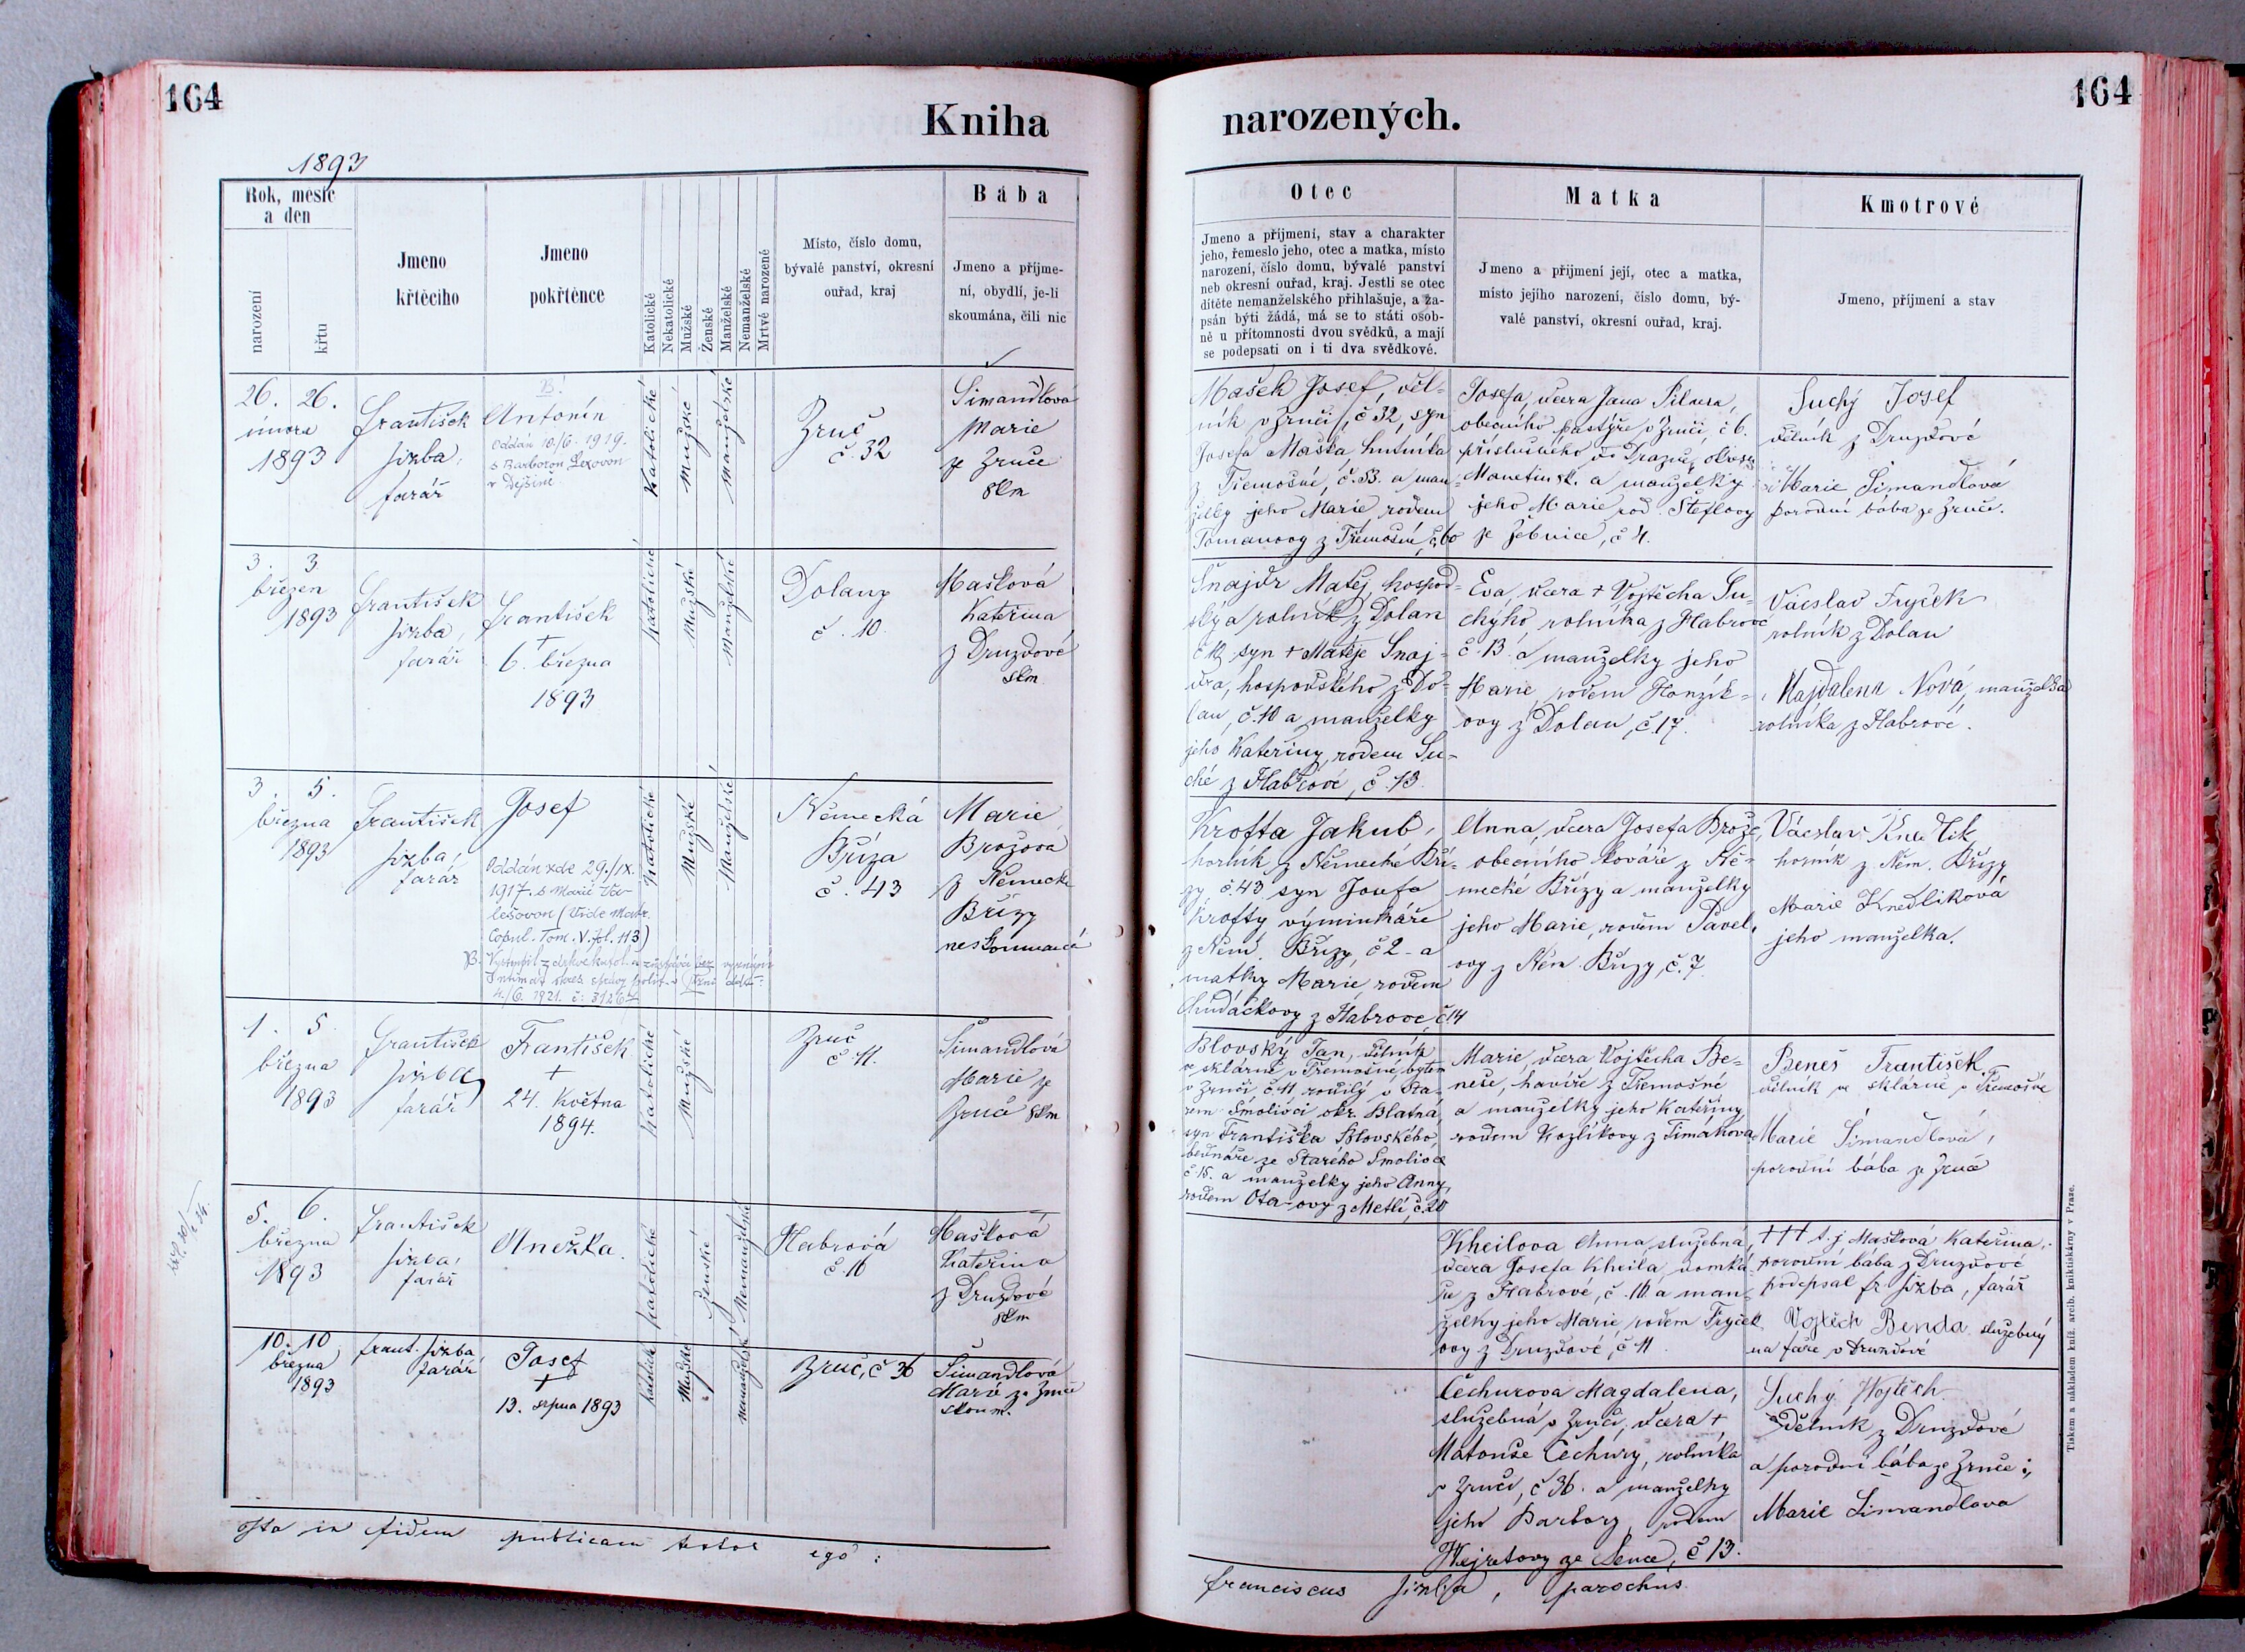 164
Kniha
narozených.
164
1893
Rok, měsíc
a den
narození
křtu
Jmeno
křtěcího
Jmeno
pokřtěnce
Katolické
Nekatolické
Mužské
Ženské
Manželské
Nemanželské
Mrtvě narozené
Místo, číslo domu,
bývalé panství, okresní
ouřad, kraj
Bába
Jmeno a příjme-
ní, obydlí, je-li
skoumána, čili nic
Otec
Jmeno a příjmení, stav a charakter
jeho, řemeslo jeho, otec a matka, místo
narození, číslo domu, bývalé panství
neb okresní ouřad, kraj. Jestli se otec
dítěte nemanželského přihlašuje, a za-
psán býti žádá, má se to státi osob-
ně u přítomnosti dvou svědků, a mají
se podepsati on i ti dva svědkové.
Matka
Jmeno a přijmení její, otec a matka,
místo jejího narození, číslo domu, bý-
valé panství, okresní ouřad, kraj.
Kmotrové
Jmeno, příjmení a stav
26. 26.
února
1893
František
Jizba,
farář
B!
Antonín
Oddán 10/6. 1919.
s Barborou
v Dejšině.
Katolické
Mužské
Manželské
Zruč
č. 32
Šimandlová
Marie
ze Zruče
skm
Mašek Josef, děl-
ník v Zruči, č 32, syn
Josefa Maška, hutníka
z Třemošné, č. 53. a man-
želky jeho Marie rodem
Tomanovy z Třemošné, č. 60
Josefa, dcera Jana
obecního pastýře v Zruči, č 6.
příslušného do
Manetinsk. a manželky
jeho Marie rod. Šteflovy
ze Žebnice, č 4.
Suchý Josef
dělník z Druzdové
Marie Šimandlová
porodní bába ze Zruče.
3. 3.
březen
1893
František
Jizba,
farář
František
+
6. března
1893
Katolické
Mužské
Manželské
Dolany
č. 10.
Mašková
Kateřina
z Druzdové
skm
Šnajdr Matěj, hospod-
ský a rolník z Dolan
č 10, syn + Matěje Šnaj-
dra, hospodského z Do-
lan, č. 10 a manželky
jeho Kateřiny, rodem Su-
ché z Habrové, č. 13
Eva, dcera + Vojtěcha Su-
chýho, rolníka z Habrové
č. 13. a manželky jeho
Marie, rodem Honzík-
ovy z Dolan, č. 17.
Václav Fryček
rolník z Dolan
Majdalena Nová, manželka
rolníka z Habrové.
3. 5.
března
1893
František
Jizba,
farář
Josef
Oddán zde 29./IX.
1917. s Marií
lešovou (Vide Matr.
Copul. Tom. V. fol. 113)
4./6. 1921. č: 3126
Katolické
Mužské
Manželské
Německá
Bříza
č. 43
Marie
Brožová
z Německé
Břízy
neskoumaná
Krofta Jakub,
horník z Německé Bří-
zy, č. 43 syn Josefa
Krofty výminkáře
z Něm. Břízy, č 2 a
matky Marie, rodem
Chudáčkovy z Habrové, č 14
Anna, dcera Josefa Brože,
obecního kováře z Ně-
mecké Břízy a manželky
jeho Marie, rodem Pavel,
ovy z Něm. Břízy, č. 7.
Václav Knedlik
horník z Něm. Břízy
Marie Knedliková
jeho manželka.
1. 5.
března
1893
František
Jizba
farář
František
+
24. Května
1894.
Katolické
Mužské
Zruč
č. 11.
Šimandlová
Marie ze
Zruč skm
Blovský Jan, dělník
ve sklárně v Třemošné, bytem
v Zruči č. 11 rodilý v Sta-
rém Smolivci okr. Blatná,
syn Františka Blovského,
bednáře ze Starého Smolivce
č. 15. a manželky jeho Anny,
rodem Ota-ovy z Metlí, č. 20
Marie, dcera Vojtěcha Be-
neše, havíře z Třemošné
a manželky jeho Kateřiny
rodem Kozlíkovy z Timákova
Beneš František,
dělník ve sklárně v Třemošné
Marie Šimandlová,
porodní bába ze Zruč
5. 6.
března
1893
František
Jizba,
farář
Anežka.
Katolické
Ženské
Nemanželské
Habrová
č. 10
Mašková
Kateřina
z Druzdové
skm
Kheilova Anna, služebná,
dcera Josefa Kheila, domká-
ře z Habrové, č. 10 a man-
želky jeho Marie rodem Fryček
ovy z Druzdové, č 11.
+++ t. j. Mašková Kateřina,
porodní bába z Druzdové
podepsal Fr. Jizba, farář
Vojtěch Benda služebný
na faře v Druzdové
10. 10.
března
1893
Frant. Jizba
farář
Josef
+
13. srpna 1893
Katolické
Mužské
nemanželské
Zruč, č 36
Šimandlová
Marie ze Zruče
skoum.
Čechurova Magdalena,
služebná v Zruči, dcera +
Matouše Čechury, rolníka
v Zruči, č 36. a manželky
jeho Barbory, rodem
Hejretovy ze Sence, č 13.
Suchý Vojtěch
dělník z Druzdové
a porodní bába ze Zruče:
Marie Simandlova
Ita in fidem publicam testor ego:
Franciscus Jizba, parochus.
Tiskem a nákladem kníž. arcib. knihtiskárny v Praze.